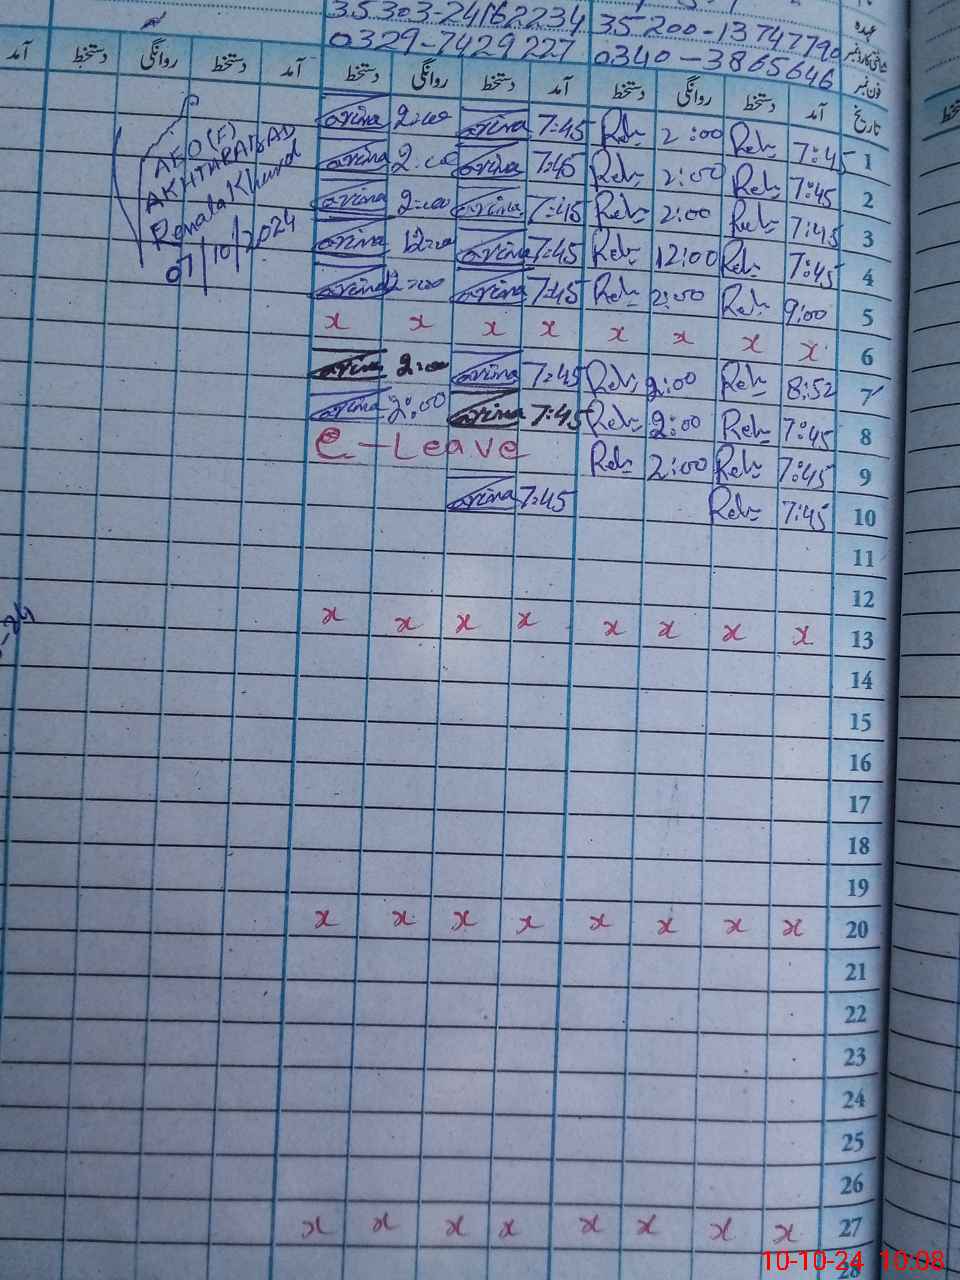 35303-24162234 35200-13747790 عہدہ
0329-7429227 0340-3865646 فون نمبر
تاریخ آمد دستخط روانگی دستخط آمد دستخط روانگی دستخط آمد دستخط روانگی دستخط آمد
1 7:45 Reh 2:00 Reh 7:45 2:00
2 7:45 Reh 2:00 Reh 7:45 2:00
3 7:45 Reh 2:00 Reh 7:45 2:00
4 7:45 Reh 12:00 Reh 7:45 12:00
5 9:00 Reh 2:00 Reh 7:45 2:00
6 x x x x x x x x
7 8:52 Reh 2:00 Reh 7:45 2:00
8 7:45 Reh 2:00 Reh 7:45 2:00
9 7:45 Reh 2:00 Reh C-Leave
10 7:45 Reh 7:45
11
12
13 x x x x x x x x
14
15
16
17
18
19
20 x x x x x x x x
21
22
23
24
25
26
27 x x x x x x x x
28
AEO(F)
AKHTARABAD
Renala Khurd
07/10/2024
10-10-24 10:08